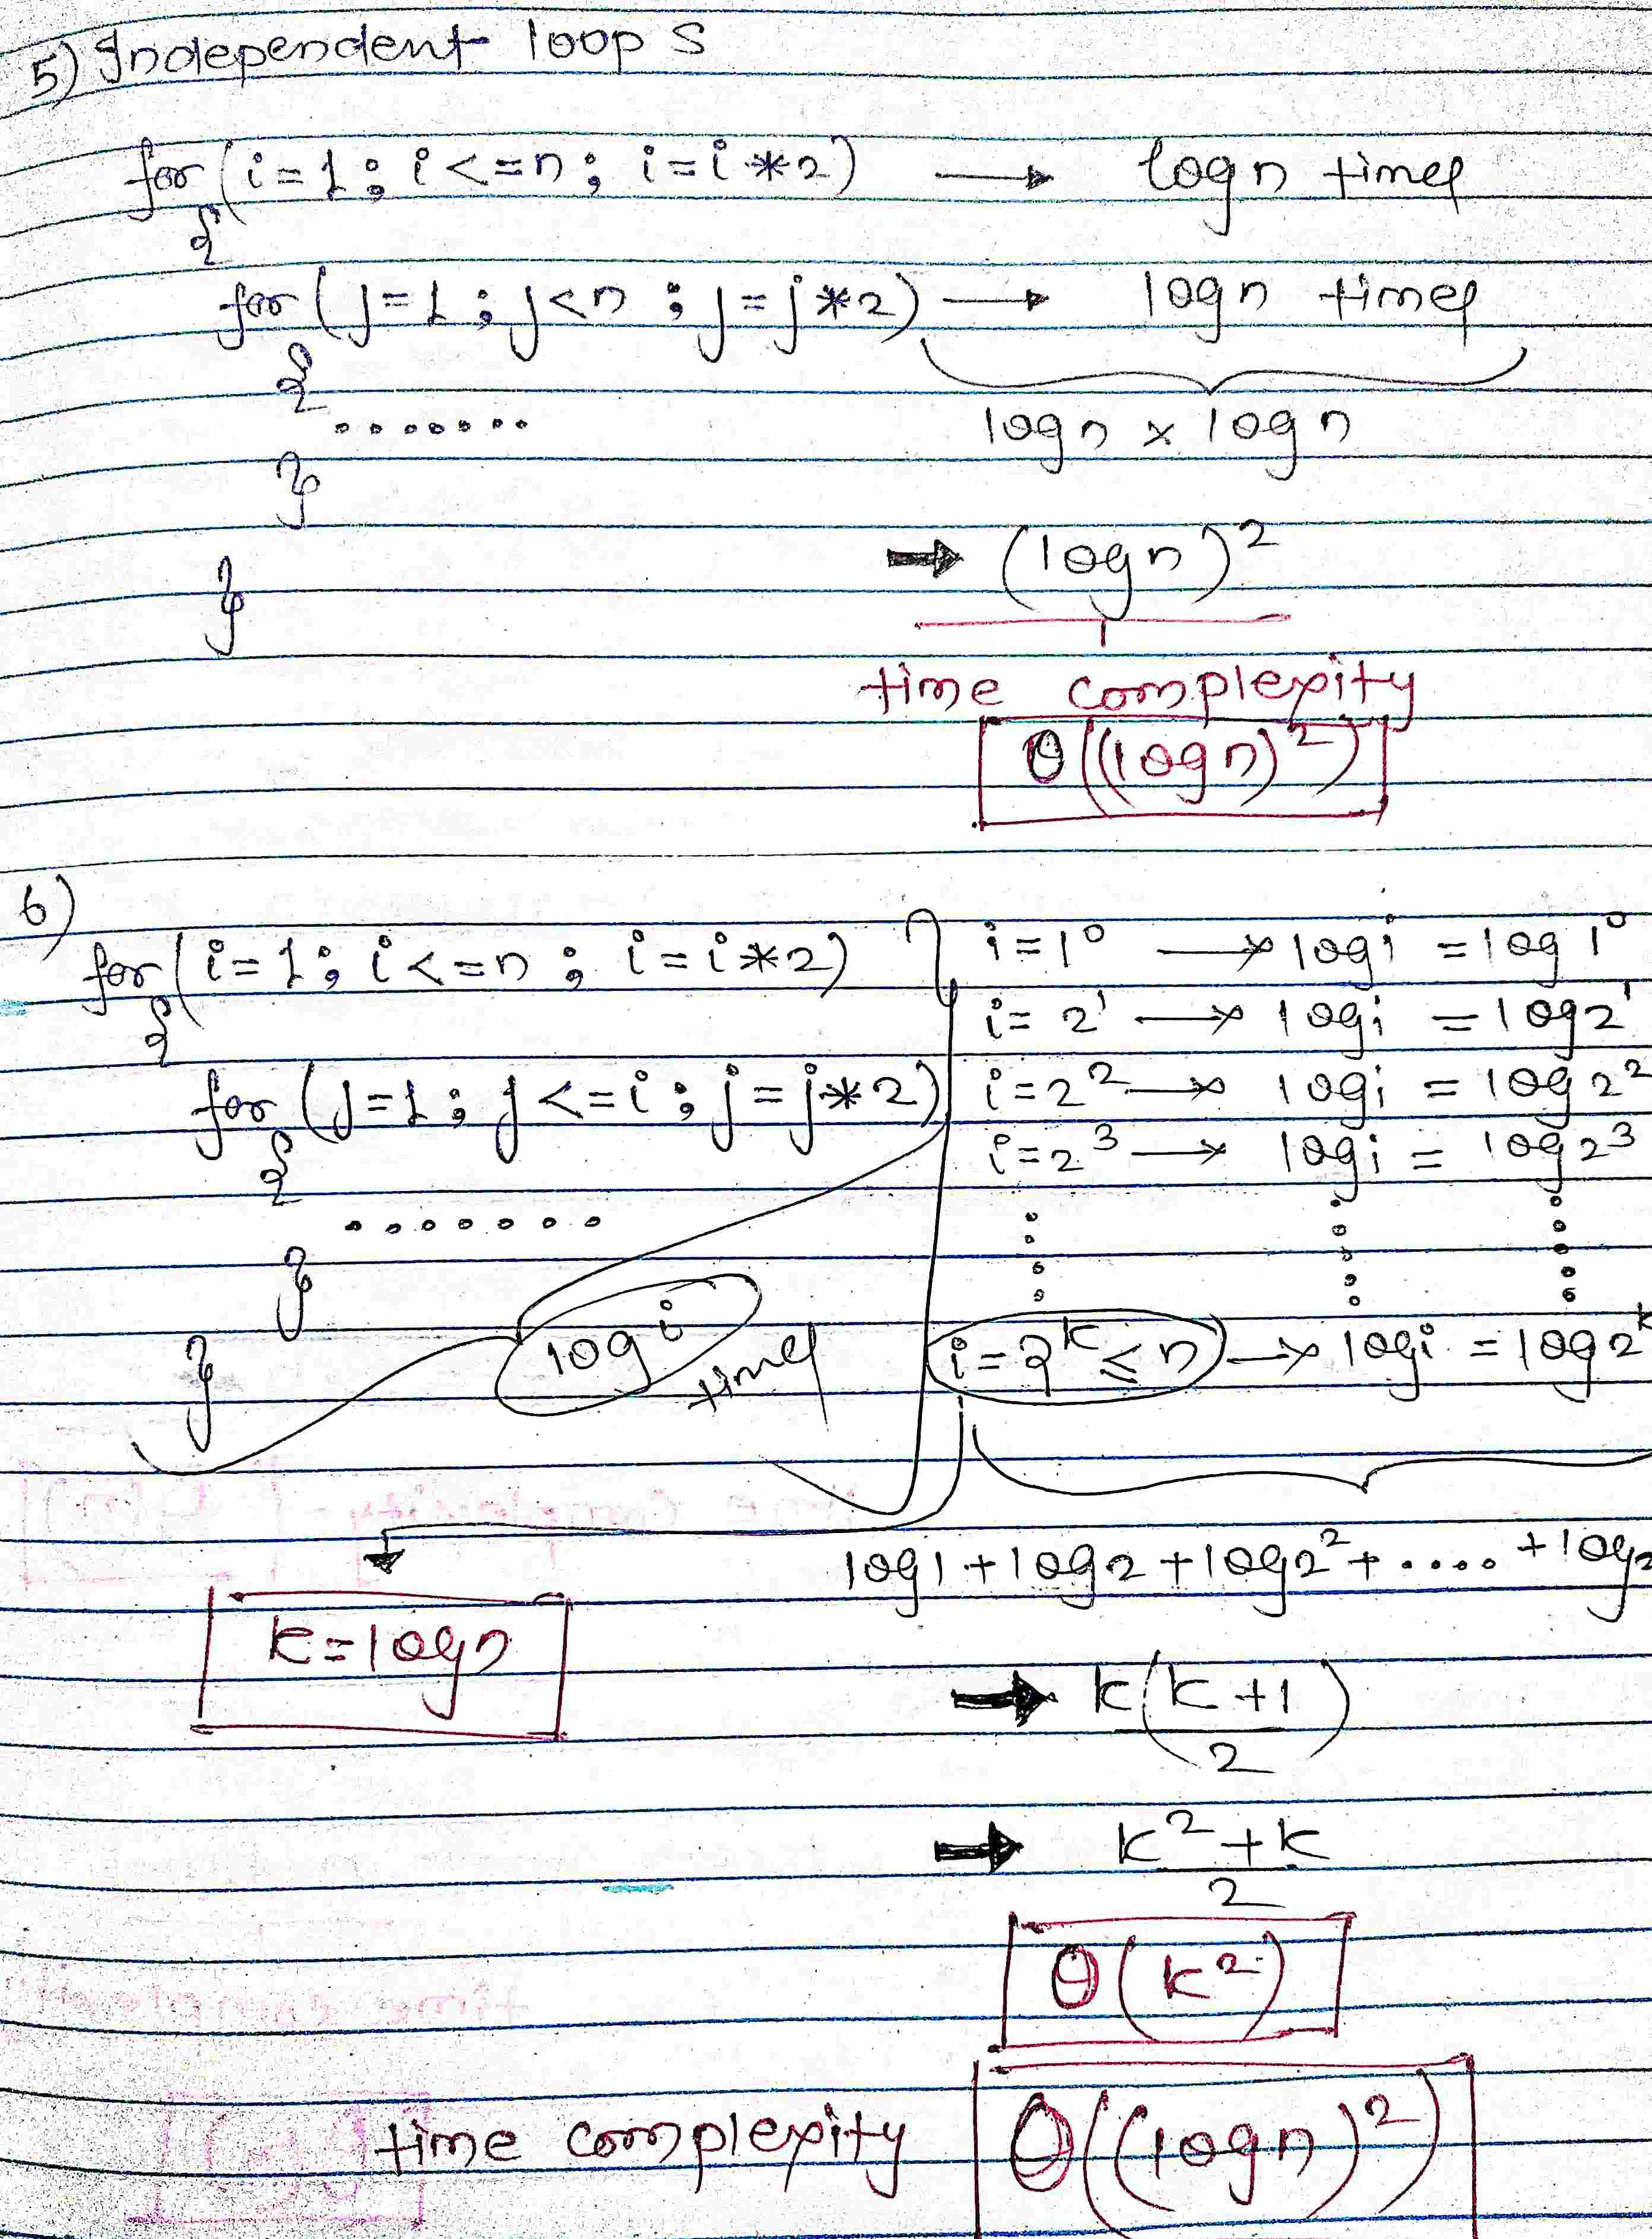 5) Independent loops
for (i=1; i<=n; i=i*2) → logn times
{
for (j=1; j<n; j=j*2) → logn times
{
.......
}
logn x logn
→ (logn)²
}
time complexity
θ((logn)²)
6)
for (i=1; i<=n; i=i*2)
{
for (j=1; j<=i; j=j*2)
{
.......
}
}
logi times
i=1⁰ → logi = log1⁰
i=2¹ → logi = log2¹
i=2² → logi = log2²
i=2³ → logi = log2³
i=2ᵏ≤n → logi = log2ᵏ
k=logn
log1+log2+log2²+....+log2
→ k(k+1/2)
→ k²+k/2
θ(k²)
time complexity θ((logn)²)